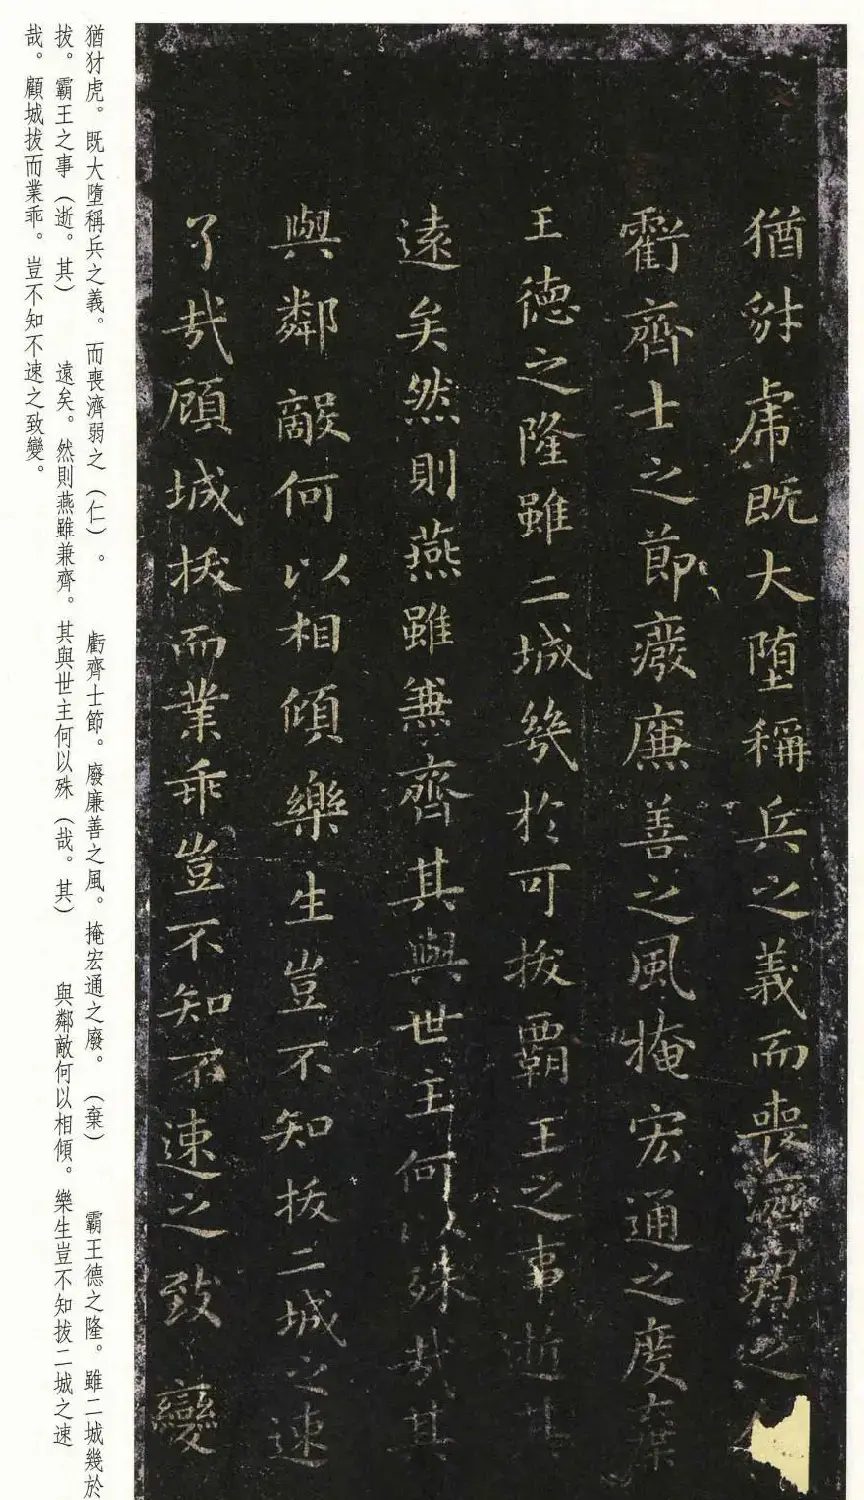 猶豺虎既大墮稱兵之義而喪濟弱之
虧齊士之節癈廉善之風掩宏通之度棄
王德之隆雖二城幾於可拔霸王之事逝其
遠矣然則燕雖兼齊其與世主何以殊哉其
與鄰敵何以相傾樂生豈不知拔二城之速
了哉顧城拔而業乖豈不知不速之致變
猶犲虎。既大墮稱兵之義。而喪濟弱之（仁）。 虧齊士節。廢廉善之風。掩宏通之廢。（棄） 霸王德之隆。雖二城幾於
拔。霸王之事（逝。其） 遠矣。然則燕雖兼齊。其與世主何以殊（哉。其） 與鄰敵何以相傾。樂生豈不知拔二城之速
哉。顧城拔而業乖。豈不知不速之致變。